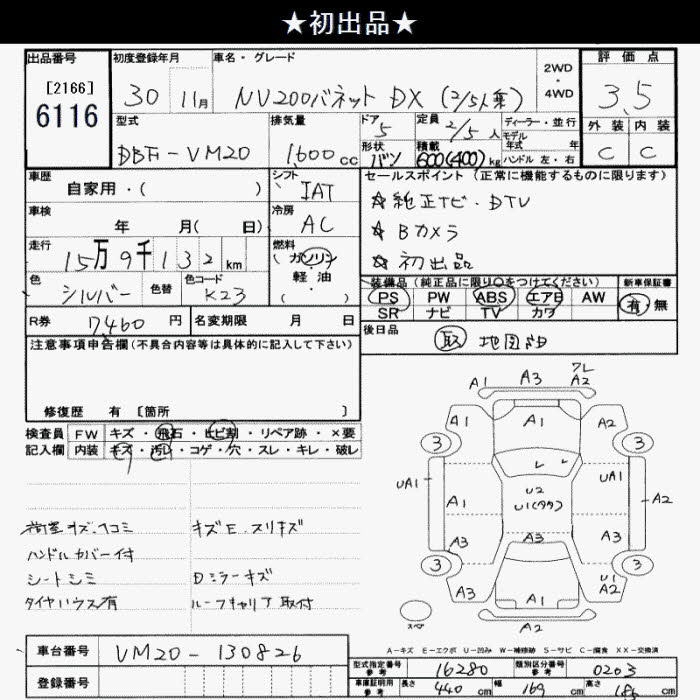 ★初出品★
出品番号 初度登録年月 車名・グレード 2WD・4WD 評価点
[2166]
6116
30 11月 NV200バネット DX (2/5人乗) 3.5
型式 排気量 ドア 定員 ディーラー・並行 外装 内装
5 2/5人 モデル年式 年式
DBF-VM20 1,600cc 形状 バン 積載 600(400)kg ハンドル 左・右 C C
車歴 自家用・( ) シフト IAT セールスポイント(正常に機能するものに限ります)
車検 年 月( 日) 冷房 AC ☆純正ナビ・DTV
☆Bカメラ
走行 15万9千132km 燃料 (ガソリン 軽・油 ( ) ☆初出品
色 シルバー 色替 色コード K23
装備品(純正品に限り○をつけてください) 新車保証書
PS PW ABS エアB AW 有 無
SR ナビ TV カワ
R券 7,460円 名変期限 月 日 後日品
取 地図
注意事項申告欄(不具合内容等は具体的に記入して下さい)
修復歴 有 [箇所 ]
検査員記入欄 FW キズ・飛石・ヒビ割・リペア跡・×要
内装 キズ・汚レ・コゲ・穴・スレ・キレ・破レ
荷室キズ、ヘコミ キズE、スリキズ
ハンドルカバー付
シートシミ Dミラーキズ
タイヤハウス有 ルーフキャリア取付
A1 A3 ワレ A2
A1 A1 A2
3 3
UA1 A1 U2 U1(タタ) UA1 A2
A3 A3 A3
3 3
A3 A1 U1 A2
スペア A2
A-キズ E-エクボ U-凹み W-補修跡 S-サビ C-腐食 XX-交換済
車台番号 VM20-130826
登録番号
型式指定番号 参考 16280 類別区分番号 参考 0203
車庫証明用 参考 長さ 440cm 幅 169cm 高さ cm